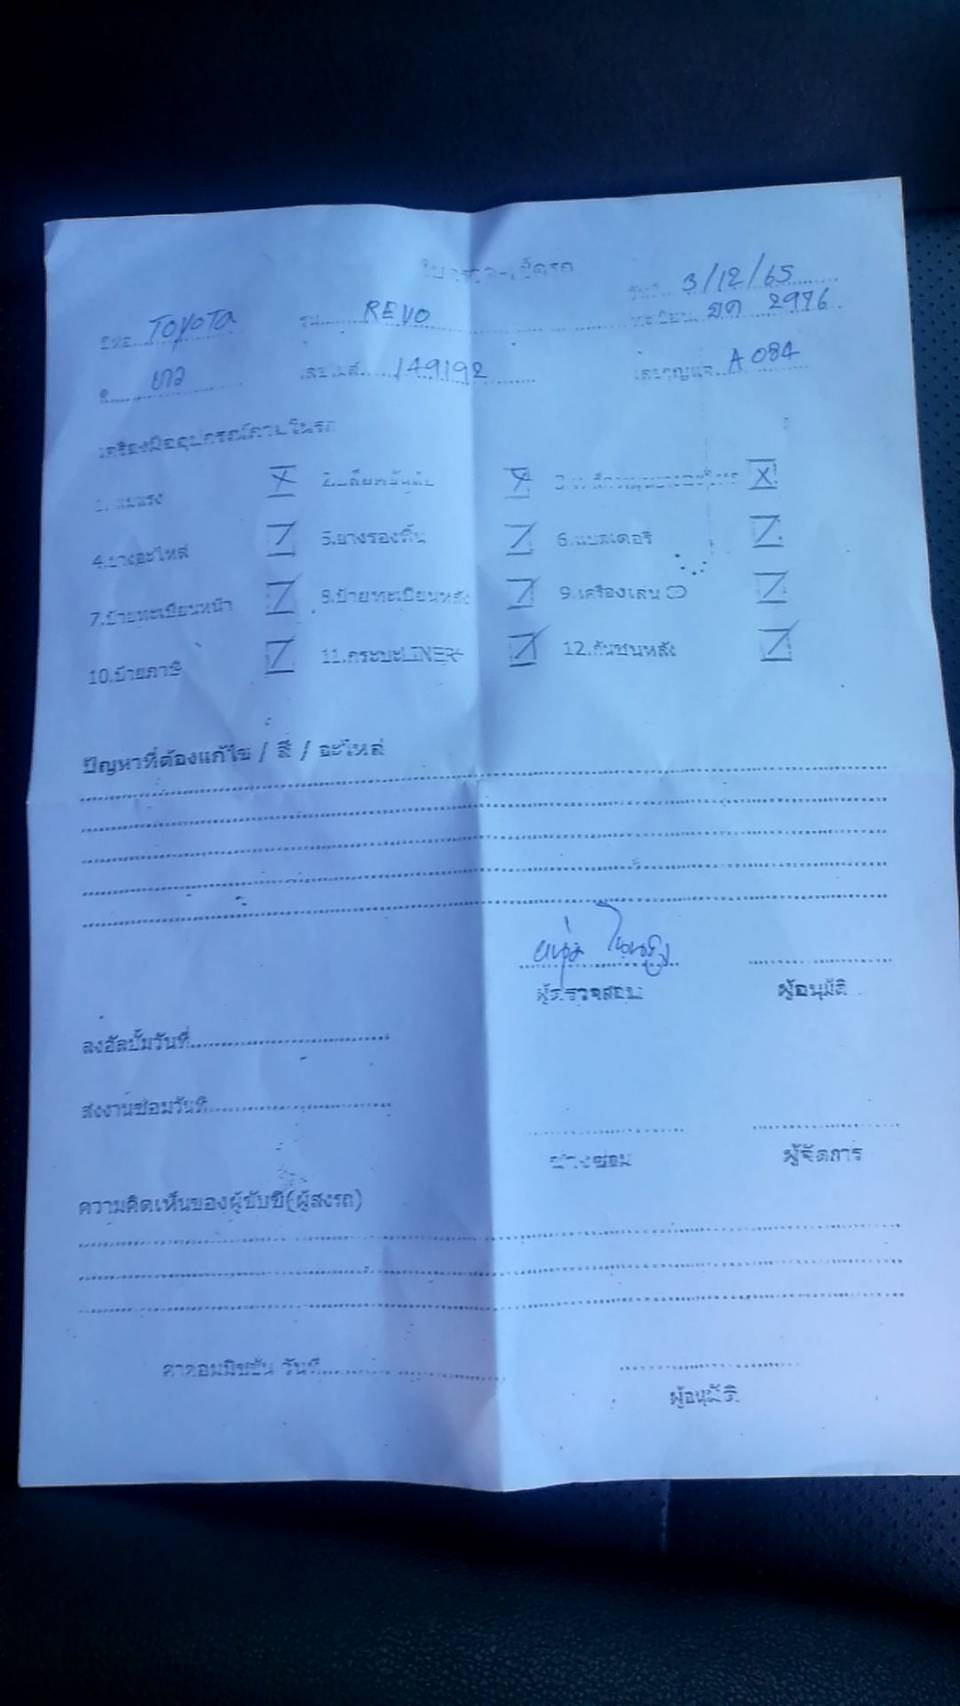 ใบตรวจเช็ครถ
วันที่ 3/12/65
ยี่ห้อ TOYOTA รุ่น REVO ทะเบียน 2976
สี ขาว เลขไมล์ 149192 เลขกุญแจ A 084
เครื่องมืออุปกรณ์ภายในรถ
1. แม่แรง
4.ยางอะไหล่ 5.ยางรองพื้น 6.แบตเตอรี่
7.ป้ายทะเบียนหน้า 8.ป้ายทะเบียนหลัง 9.เครื่องเล่น
10.ป้ายภาษี 11.กระบะLINER 12.กันชนหลัง
ปัญหาที่ต้องแก้ไข / สี / อะไหล่
ผู้ตรวจสอบ ผู้อนุมัติ
ลงอัลบั้มวันที่
ส่งงานซ่อมวันที่
ช่างซ่อม ผู้จัดการ
ความคิดเห็นของผู้ขับขี่(ผู้ส่งรถ)
ค่าคอมมิชชั่น วันที่
ผู้อนุมัติ